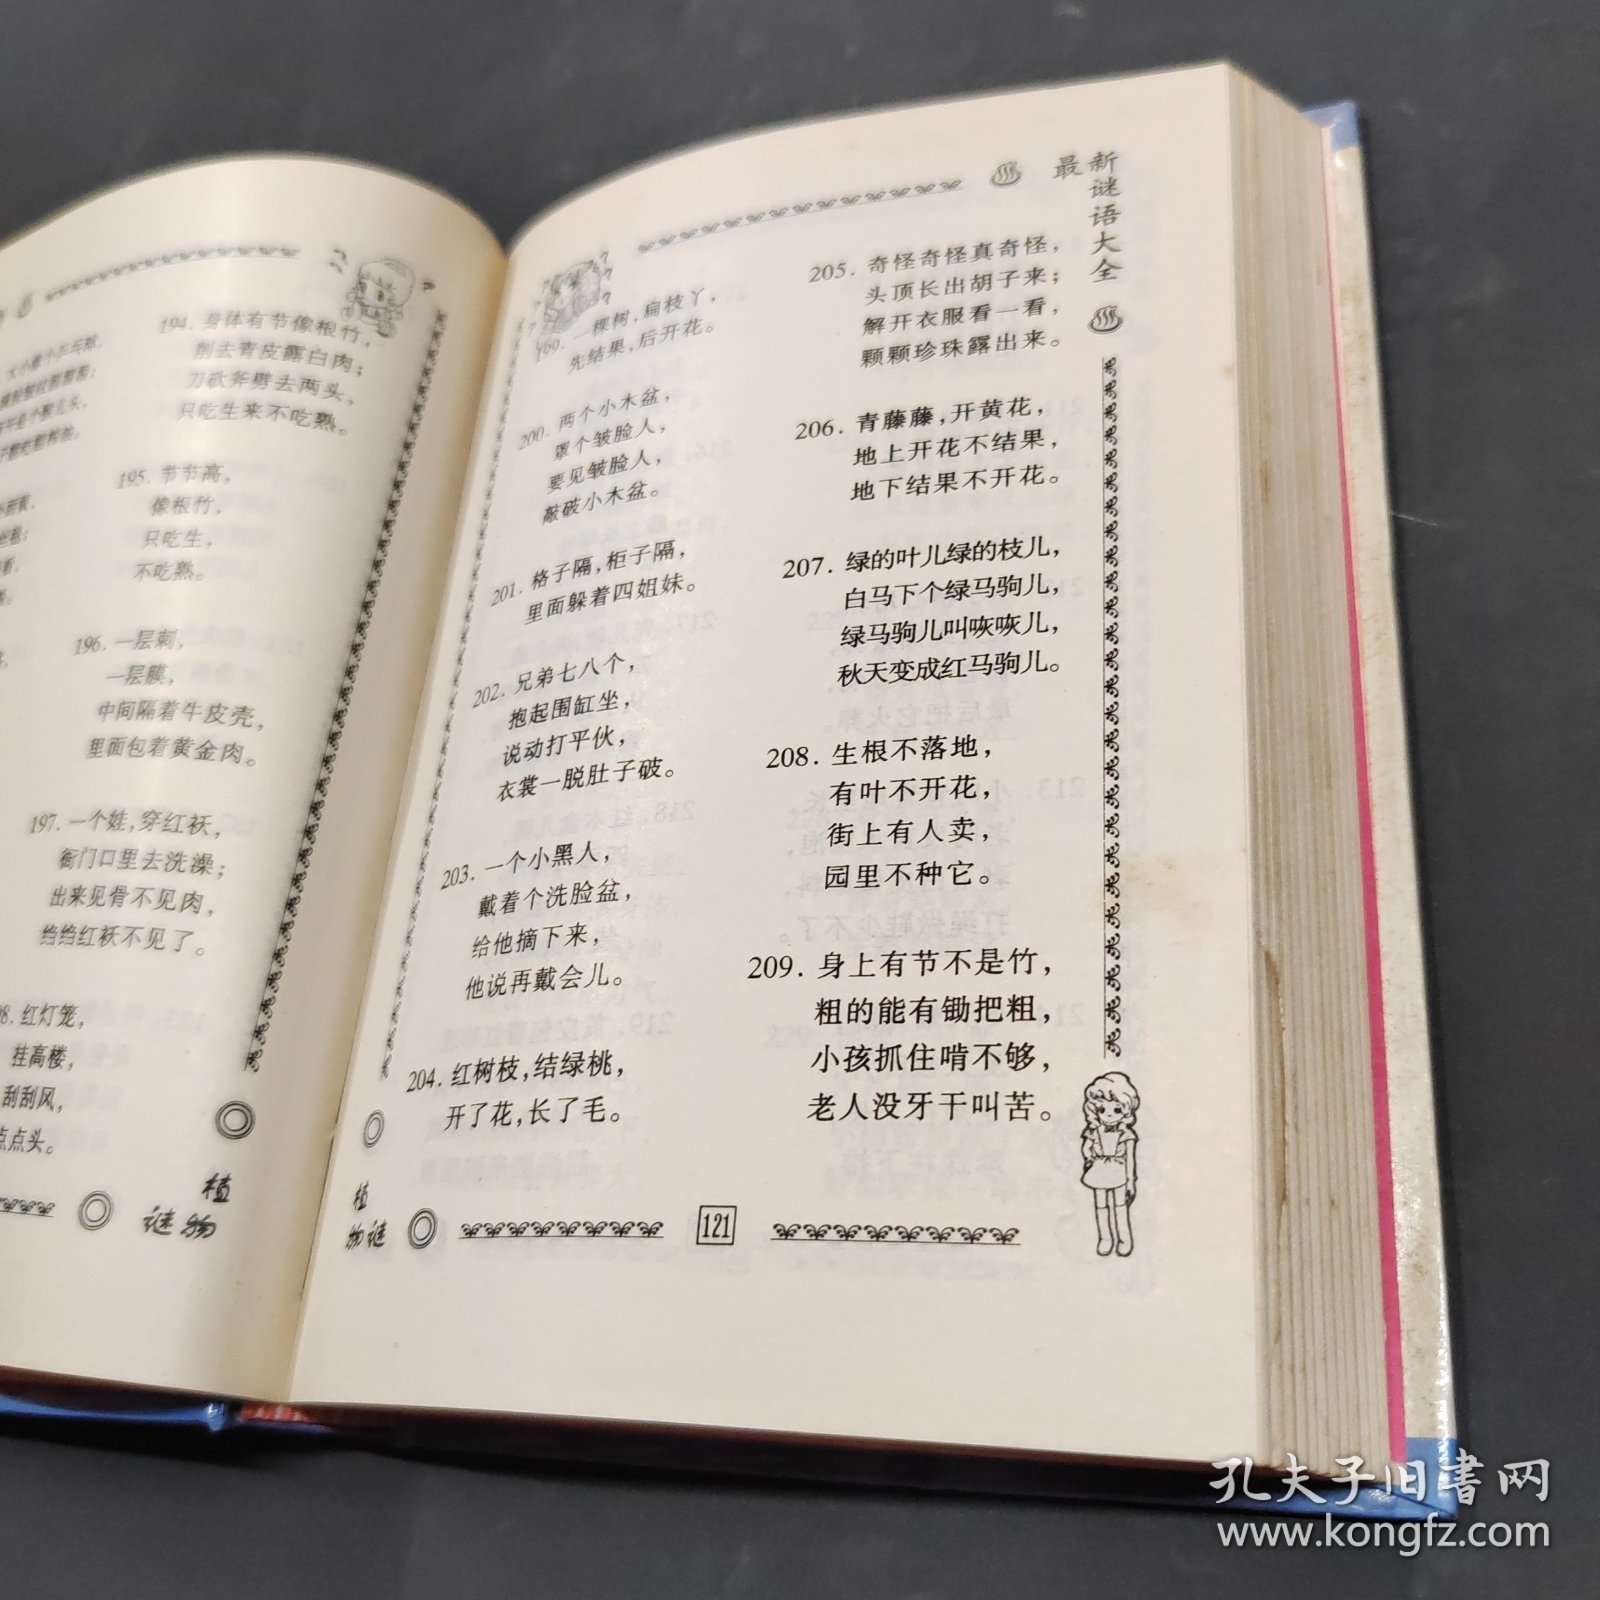 194. 身体有节像根竹，
削去青皮露白肉；
刀砍斧劈去两头，
只吃生来不吃熟。
195. 节节高，
像根竹，
只吃生，
不吃熟。
196. 一层刺，
一层膜，
中间隔着牛皮壳，
里面包着黄金肉。
197. 一个娃，穿红袄，
衙门口里去洗澡；
出来见骨不见肉，
绉绉红袄不见了。
8. 红灯笼，
挂高楼，
刮刮风，
点点头。
植
物
谜
最新谜语大全
199. 一棵树，扁枝丫，
先结果，后开花。
200. 两个小木盆，
罩个皱脸人，
要见皱脸人，
敲破小木盆。
201. 格子隔，柜子隔，
里面躲着四姐妹。
202. 兄弟七八个，
抱起围缸坐，
说动打平伙，
衣裳一脱肚子破。
203. 一个小黑人，
戴着个洗脸盆，
给他摘下来，
他说再戴会儿。
204. 红树枝，结绿桃，
开了花，长了毛。
205. 奇怪奇怪真奇怪，
头顶长出胡子来；
解开衣服看一看，
颗颗珍珠露出来。
206. 青藤藤，开黄花，
地上开花不结果，
地下结果不开花。
207. 绿的叶儿绿的枝儿，
白马下个绿马驹儿，
绿马驹儿叫咴咴儿，
秋天变成红马驹儿。
208. 生根不落地，
有叶不开花，
街上有人卖，
园里不种它。
209. 身上有节不是竹，
粗的能有锄把粗，
小孩抓住啃不够，
老人没牙干叫苦。
植
物谜
121
孔夫子旧书网
www.kongfz.com